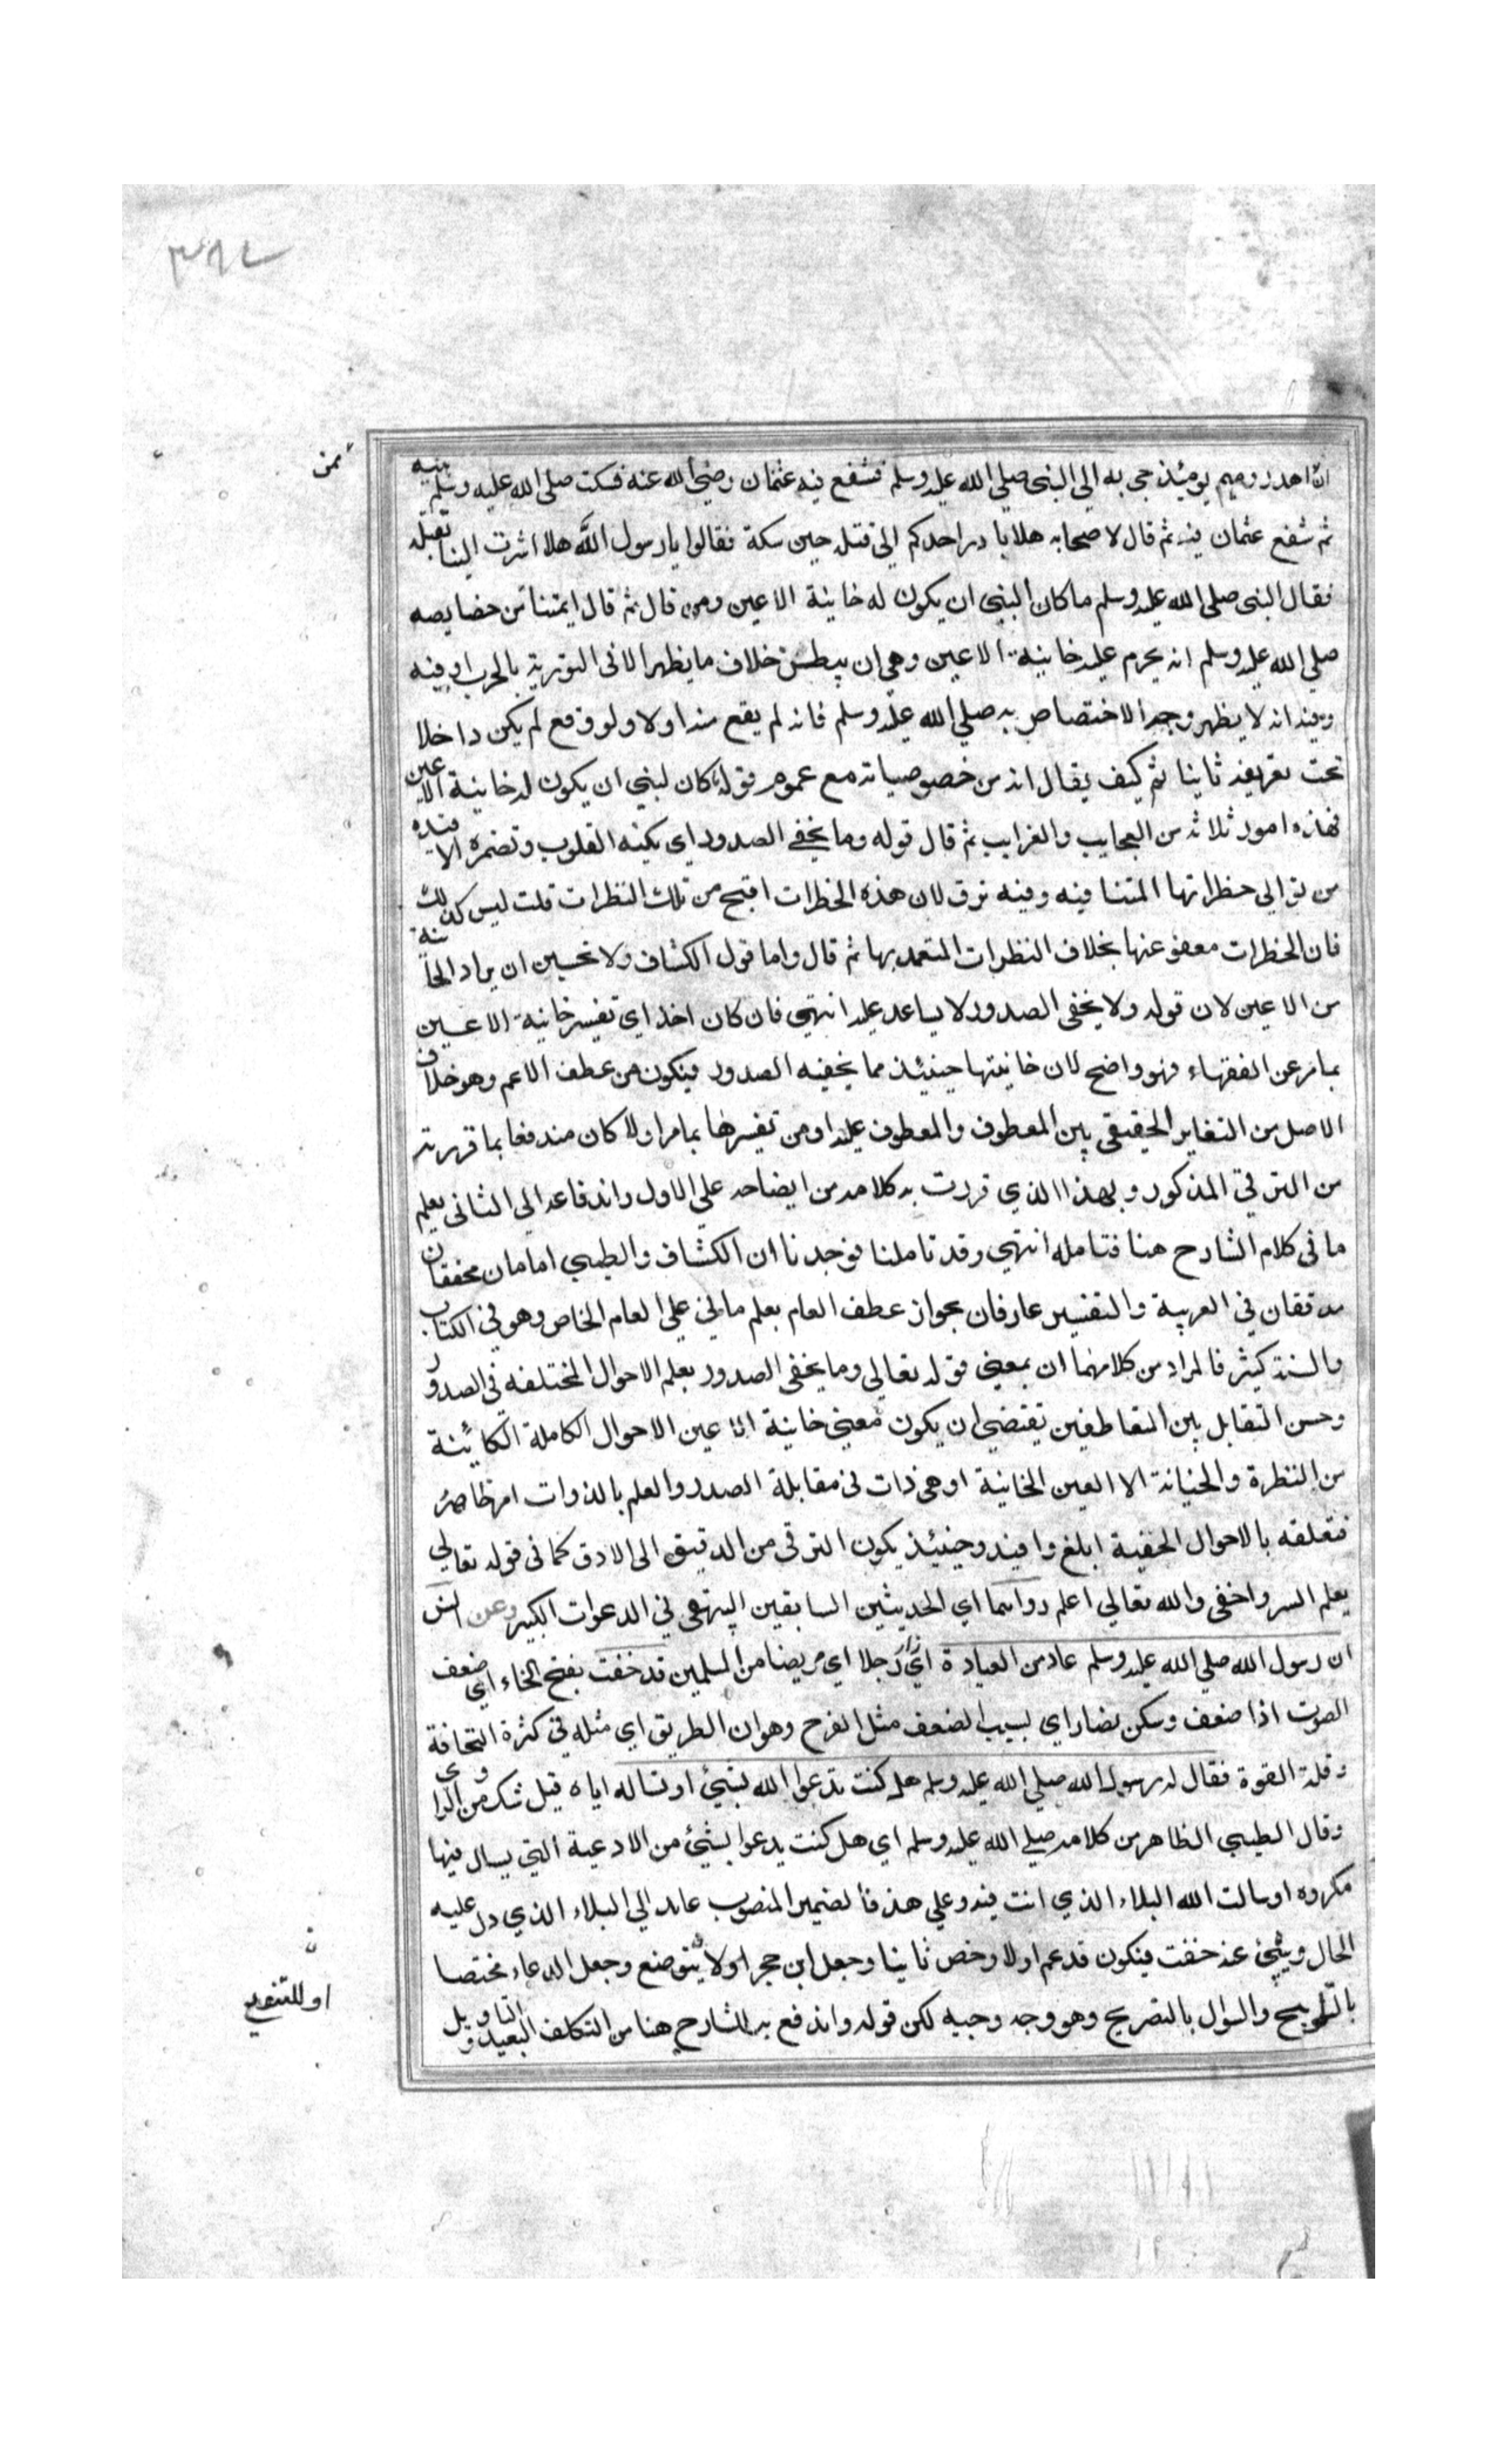 ٣٨٢
ممن
ان اهدر دمهم يومئذ جي به الي النبي صلي الله عليه وسلم فشفع فيه عثمان رضي الله عنه فسكت صلي الله عليه وسلم فيه
ثم شفع عثمان فيه ثم قال لاصحابه هلا بادر احدكم الي قتله حين سكة فقالوا يا رسول الله هلا اشرت الينا بقتله
فقال النبي صلي الله عليه وسلم ما كان النبي ان يكون له خاينة الاعين ومن قال ثم قال ايمتنا من خصايصه
صلي الله عليه وسلم انه يحرم عليه خاينة الاعين وهي ان يبطن خلاف ما يظهر الا في التورية بالحرب وفيه
وفيه انه لا يظهر وجه الاختصاص به صلي الله عليه وسلم فانه لم يقع منه اولا ولو وقع لم يكن داخلا
تحت تعريفه ثانيا ثم كيف يقال انه من خصوصياته مع عموم قوله ما كان لنبي ان يكون له خاينة الاعين
فهذه امور ثلاثة من العجايب والغرايب ثم قال قوله وما يخفي الصدور اي يكنه القلوب وتضمره الافيدة
من توالي خطراتها المتنا فيه وفيه ترق لان هذه الخطرات اقبح من تلك النظرات قلت ليس كذلك
فان الخطرات معفو عنها بخلاف النظرات المتعمد بها ثم قال واما قول الكشاف ولا تحسبن ان يراد الخاينة
من الاعين لان قوله ولا يخفي الصدور لا يساعد عليه انتهي فان كان اخذ اي تفسير خاينة الاعين
بما مر عن الفقهاء فهو واضح لان خاينتها حينئذ مما يخفيه الصدور فيكون من عطف الاعم وهو خلاف
الاصل من التغاير الحقيقي بين المعطوف والمعطوف عليه او من تفسيرها بما مر اولا كان مندفعا بما قررته
من الترقي المذكور وبهذا الذي قررت به كلامه من ايضاحه علي الاول واندفاعه الي الثاني يعلم
ما في كلام الشارح هنا فتامله انتهي وقد تاملنا فوجدنا ان الكشاف والطيبي امامان محققان
مدققان في العربية والتفسير عارفان بجواز عطف العام بعلم ما في علي العام الخاص وهو في الكتاب
والسنة كثير فالمراد من كلامهما ان بمعني قوله تعالي وما يخفي الصدور يعلم الاحوال المختلفه في الصدور
وحسن التقابل بين المتعاطفين يقتضي ان يكون معني خاينة الاعين الاحوال الكاملة الكائنة
من النظرة والخيانة الا العين الخاينة او هي ذات في مقابلة الصدر والعلم بالذوات امر ظاهر
فتعلقه بالاحوال الخفية ابلغ وافيد وحينئذ يكون الترقي من الدقيق الي الادق كما في قوله تعالي
يعلم السر واخفي والله تعالي اعلم رواهما اي الحديثين السابقين البيهقي في الدعوات الكبير وعن انس
ان رسول الله صلي الله عليه وسلم عاد من العيادة اي زار رجلا اي مريضا من المسلمين قد خفت بفتح الخاء اي ضعف
الصوت اذا ضعف وسكن فصار اي بسبب الضعف مثل الفرخ وهو ان الطريق اي مثله في كثرة النحافة
وقلة القوة فقال له رسول الله صلي الله عليه وسلم هل كنت تدعوا الله بشيئ او تساله اياه قيل شك من الراوي
وقال الطيبي الظاهر من كلامه صلي الله عليه وسلم اي هل كنت يدعوا بشيئ من الادعية التي يسال فيها
مكروه او سالت الله البلاء الذي انت فيه وعلي هذ فالضمير المنصوب عايد الي البلاء الذي دل عليه
الحال وينبئ عنه خفت فيكون قد عم اولا وخص ثانيا وجعل ابن حجر او لا يتوضع وجعل الدعاء مختصا
بالتلويح والسوال بالتصريح وهو وجه وجيه لكن قوله واندفع به للشارح هنا من التكلف البعيد و التاويل
او للتنويع